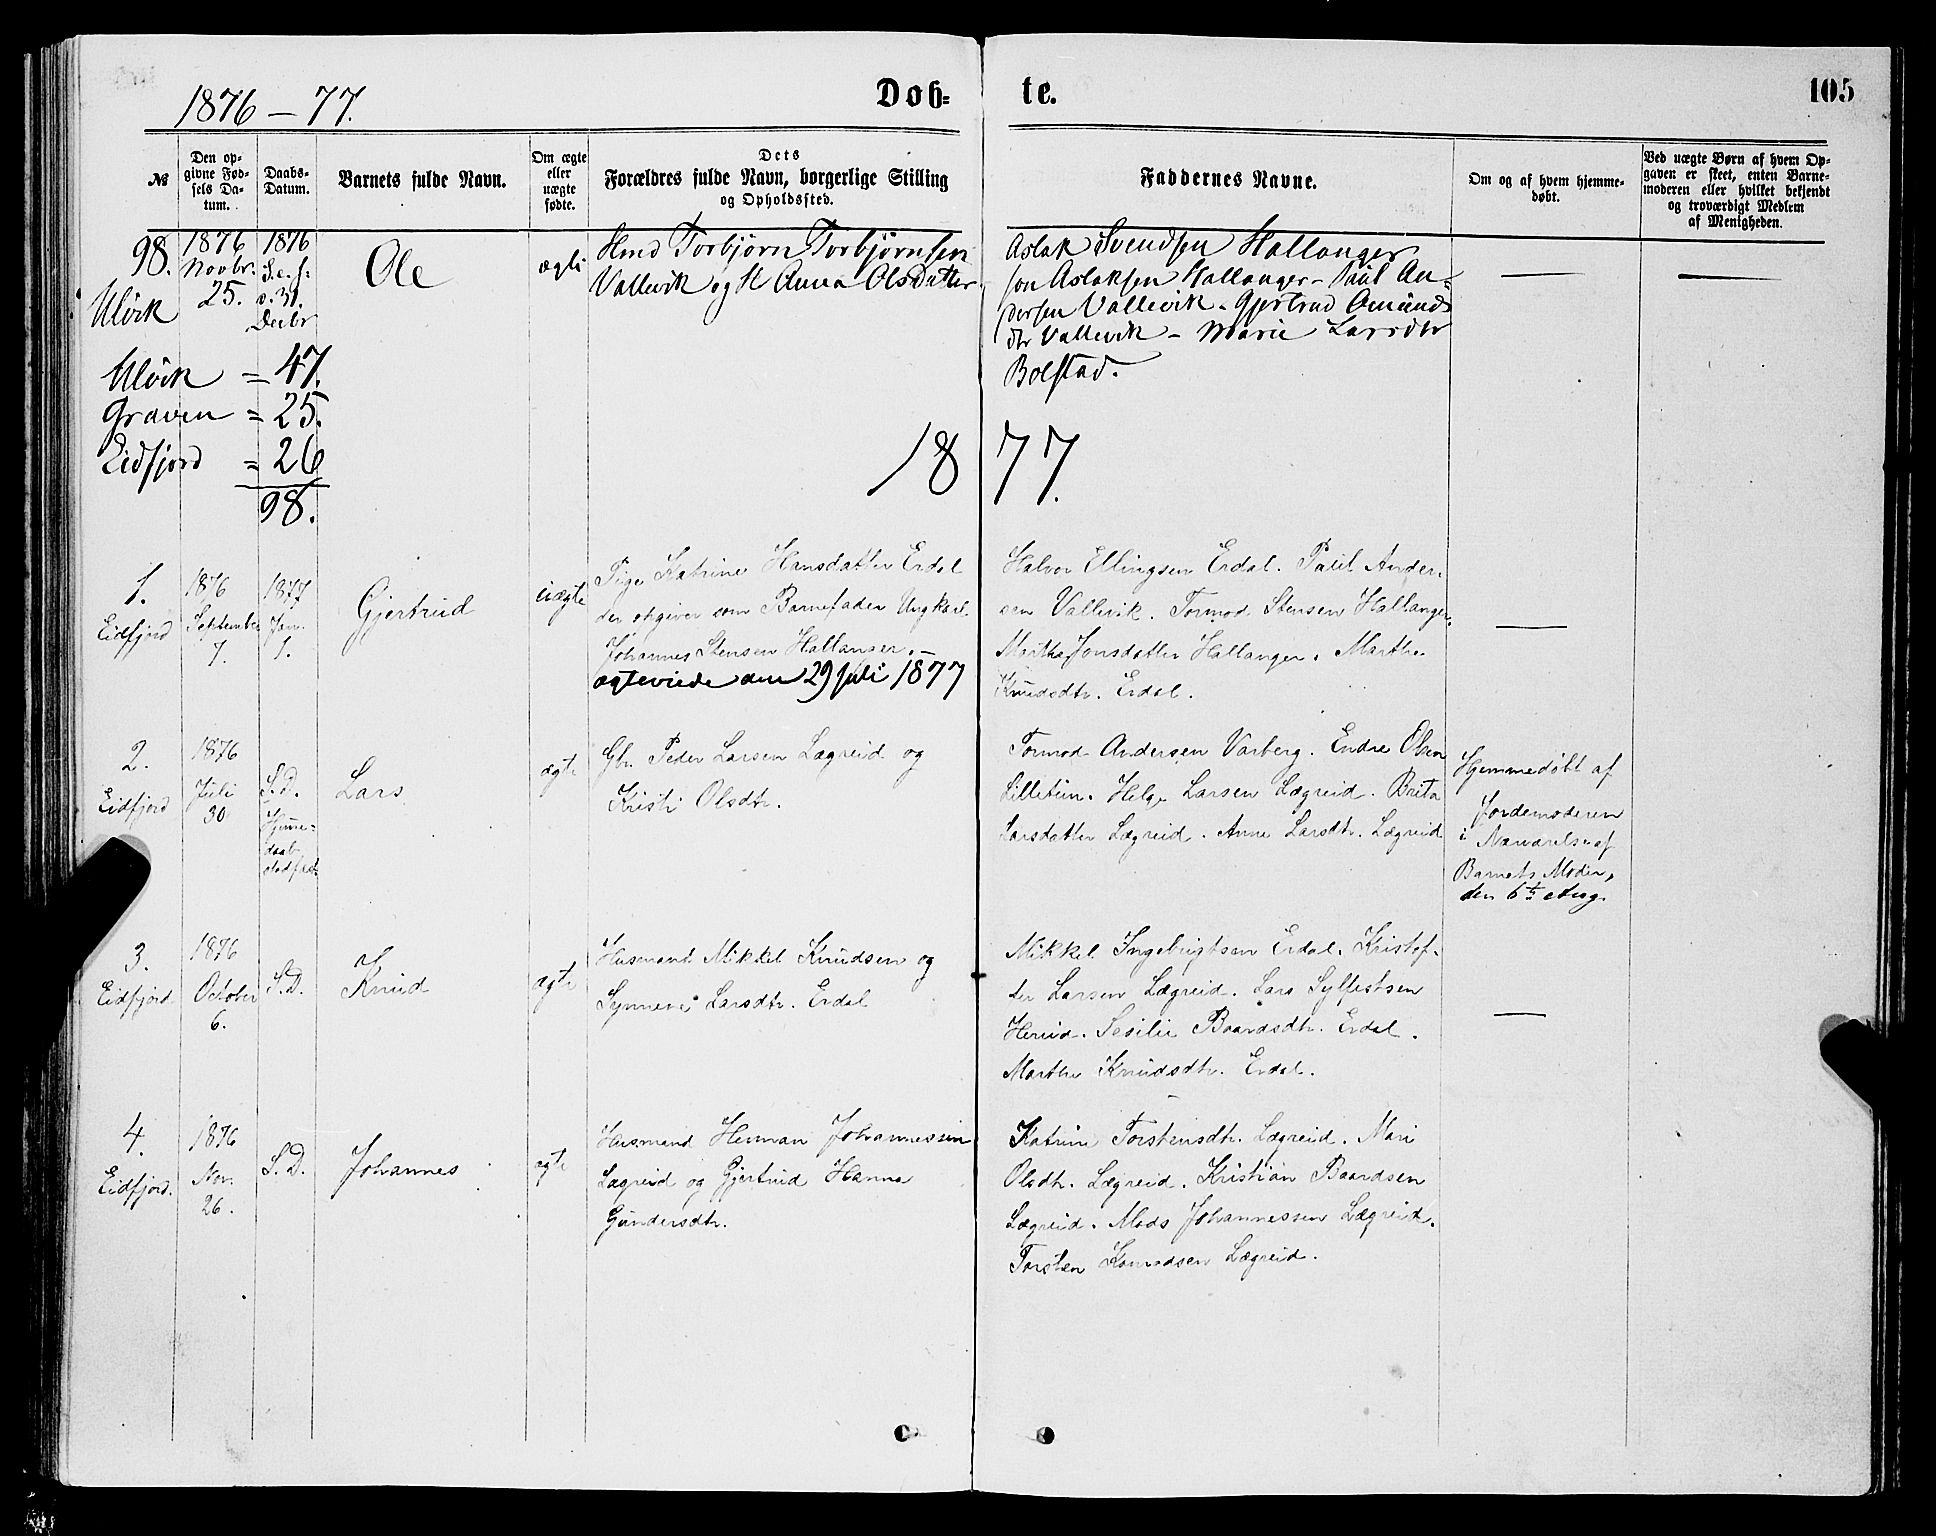 1876 – 77.
Døb-
te.
105
№
Den op-
givne Fød-
sels Da-
tum.
Daabs-
Datum.
Barnets fulde Navn.
Om ægte
eller
uægte
fødte.
Dets
Forældres fulde Navn, borgerlige Stilling
og Opholdssted.
Faddernes Navne.
Om og af hvem hjemme-
døbt.
Ved uægte Børn af hvem Op-
gaven er skeet, enten Barne-
moderen eller hvilket bekjendt
og troværdigt Medlem
af Menigheden.
98.
Ulvik
1876
Novbr.
25.
1876
S. e. J.
d. 31.
Decbr
Ole
ægte
Hmd Torbjørn Torbjørnsen
Vallevik og H Anna Olsdatter
Aslak Svendsen Hallanger
Aslaksen Hallanger – Paul An-
dersen Vallevik – Gjertrud Amunds
dtr Vallevik – Marie Larsdtr
Bolstad.
Ulvik = 47.
Graven = 25.
Eidfjord = 26
98.
1877.
1.
Eidfjord
1876
September
7.
1877
Jan.
1.
Gjertrud
uægte
Pige Katrine Hansdatter Erdal
der opgiver som Barnefader Ungkarl
Johannes Stensen Hallanger. –
ægteviede den 29 juli 1877
Halvor Ellingsen Erdal. Paul Ander-
sen Vallevik. Tormod Stensen Hallanger.
Jonsdatter Hallanger. Marthe
Knudsdtr. Erdal.
2.
Eidfjord
1876
Juli
30
S. D.
Hjemme-
daab
stadfæst.
Lars
ægte
Gbr. Peder Larsen Lægreid og
Kristi Olsdtr.
Tormod Andersen Varberg. Endre Olsen
Lilletun. Helge Larsen Lægreid. Brita
Larsdatter Lægreid. Anne Larsdtr. Lægreid
Hjemmedøbt af
Jordemoderen
i Nærværelse af
Barnets Moder,
den 6te Aug.
3.
Eidfjord
1876
October
6.
S. D.
Knud
ægte
Husmand Mikkel Knudsen og
Synneve Larsdtr. Erdal
Mikkel Ingebrigtsen Erdal. Kristof-
fer Larsen Lægreid. Lars Sylfestsen
Hereid. Sesilie Baardsdtr. Erdal.
Marthe Knudsdtr. Erdal.
4.
Eidfjord.
1876
Nov.
26.
S. D.
Johannes
ægte
Husmand Herman Johannessen
Lægreid og Gjertrud Hanna
Gundersdtr.
Katrine Torstensdtr. Lægreid. Mari
Olsdtr. Lægreid. Kristian Baardsen
Lægreid. Mads Johannessen Lægreid.
Torsten Lægreid.